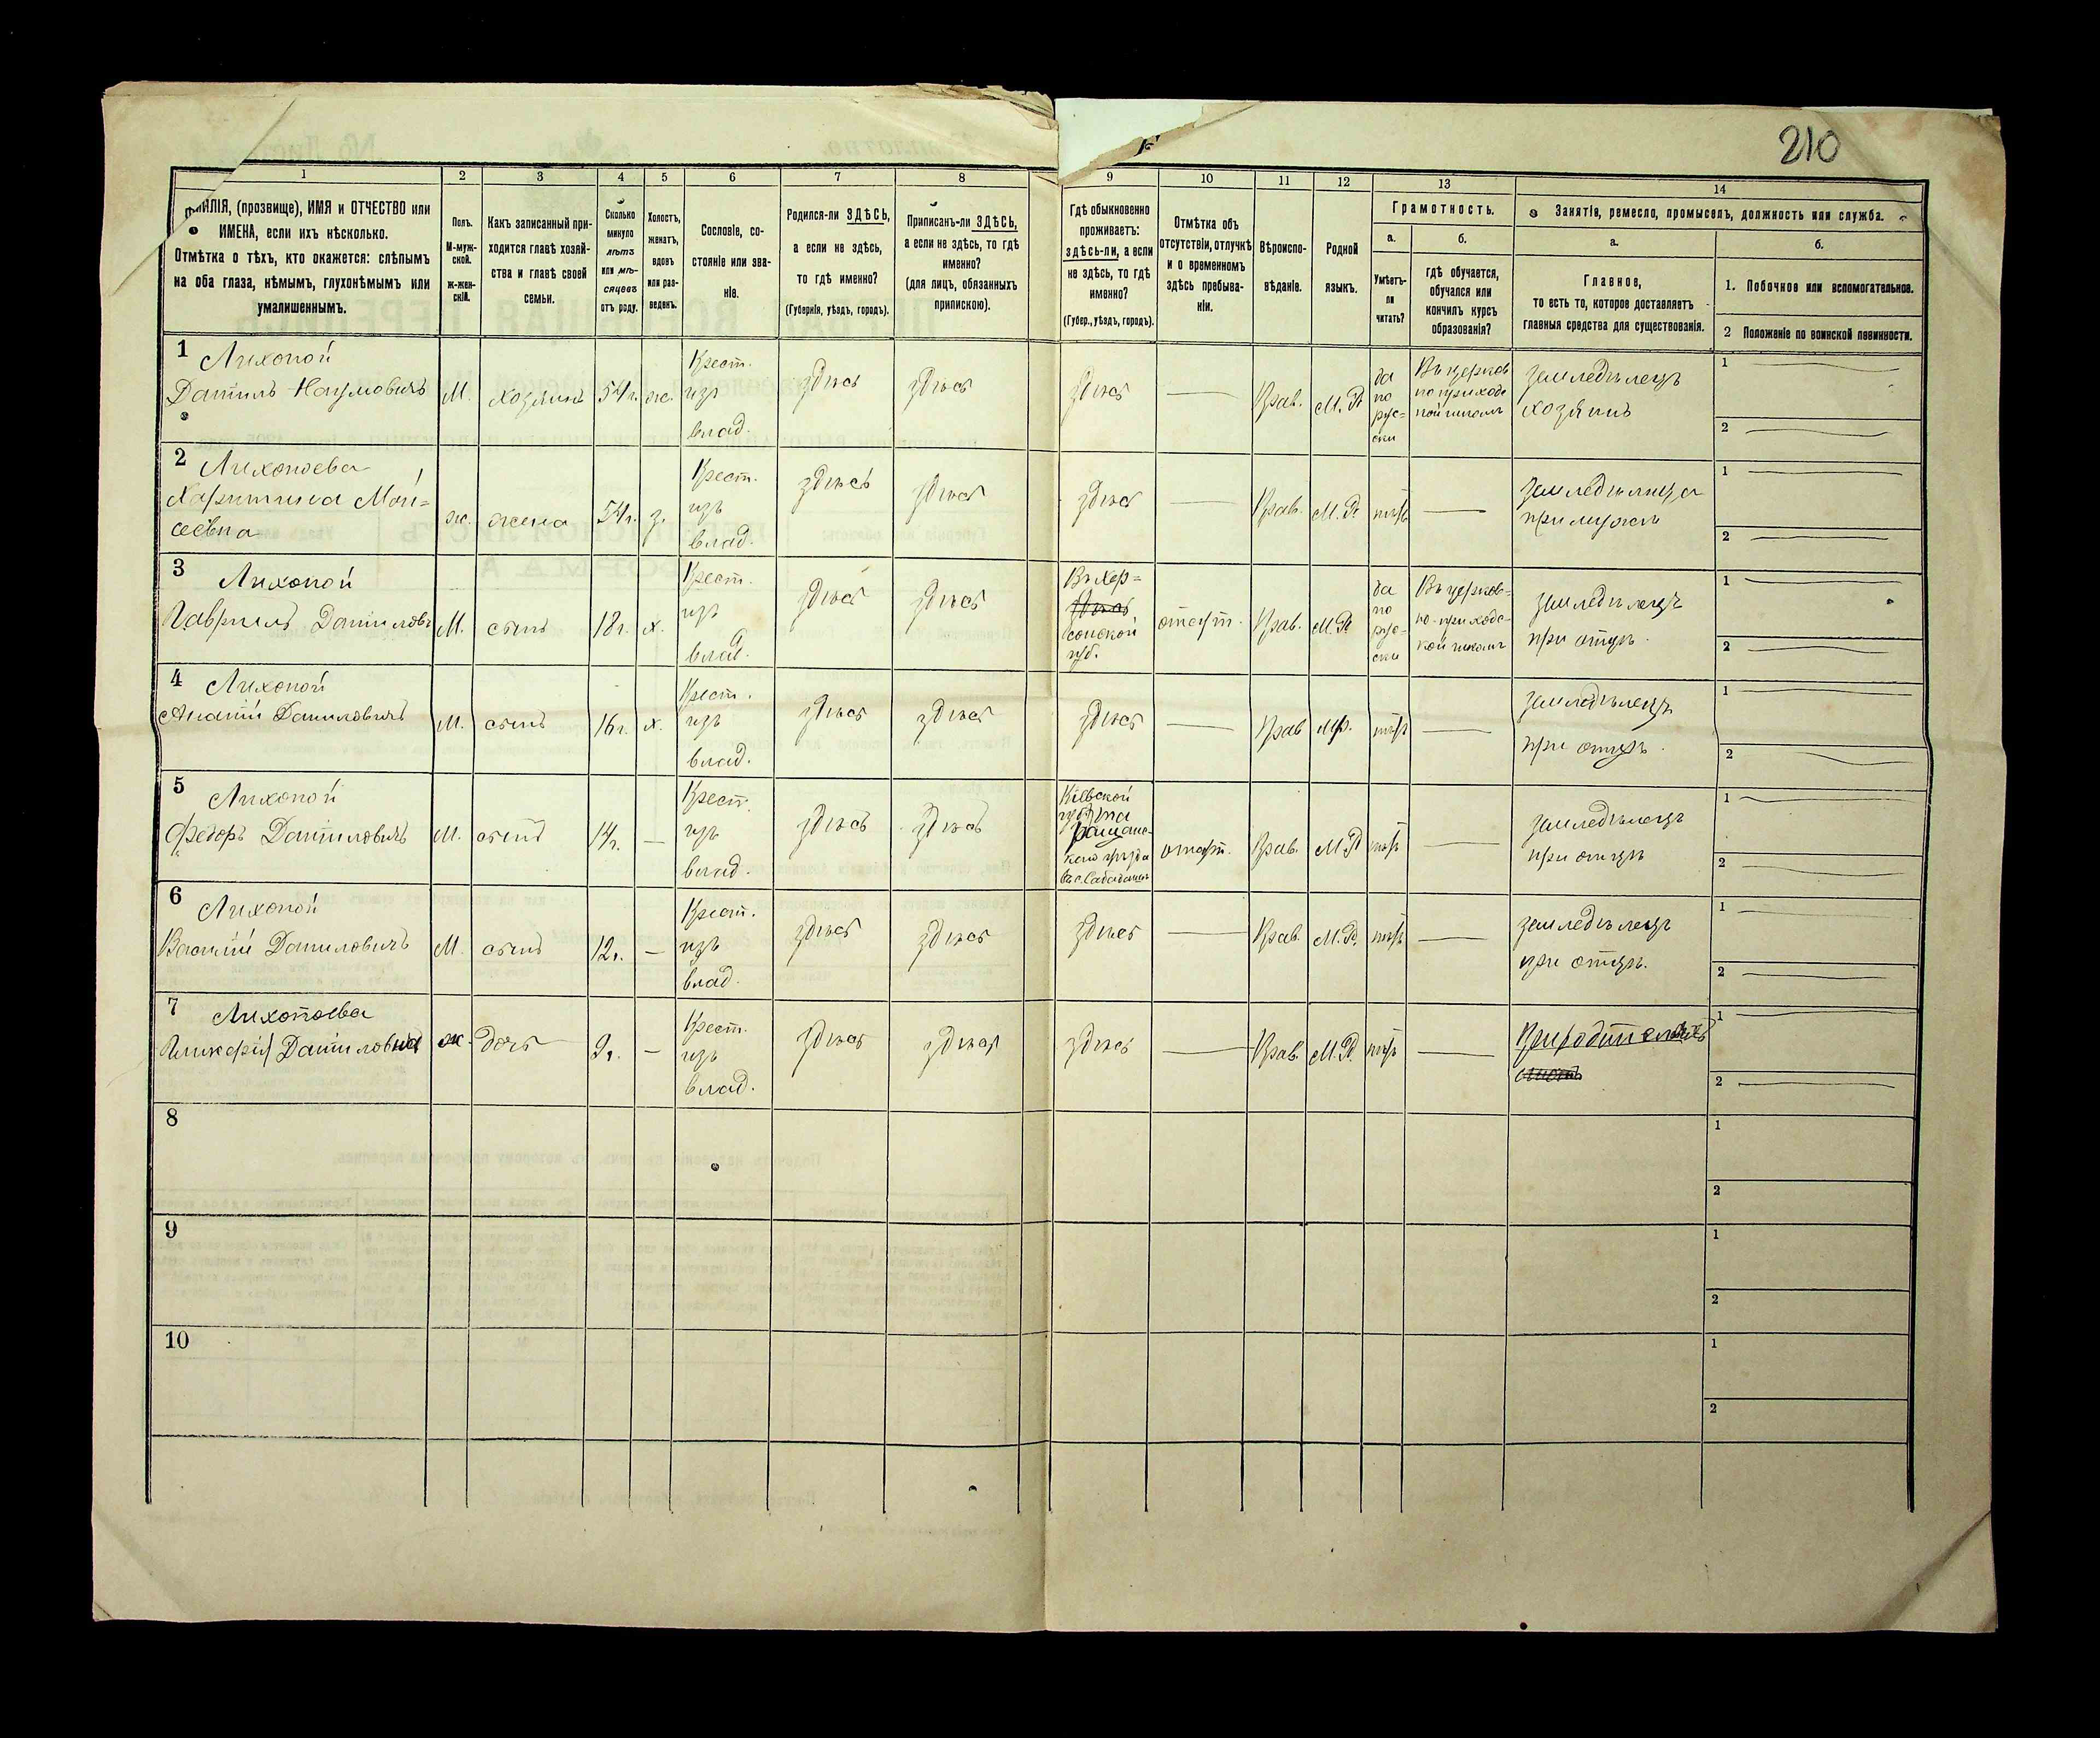 210
1
2
3
4
5
6
7
8
9
10
11
12
13
14
ИЛІЯ, (прозвище), ИМЯ и ОТЧЕСТВО или
ИМЕНА, если ихъ нѣсколько.
Отмѣтка о тѣхъ, кто окажется: слѣпымъ
на оба глаза, нѣмымъ, глухонѣмымъ или
умалишеннымъ.
Полъ.
М-муж-
ской.
ж-жен-
скій.
Какъ записанный при-
ходится главѣ хозяй-
ства и главѣ своей
семьи.
Сколько
минуло
лѣтъ
или мѣ-
сяцевъ
отъ роду.
Холостъ,
женатъ,
вдовъ
или раз-
веденъ.
Сословіе, со-
стояніе или зва-
ніе.
Родился-ли ЗДѢСЬ,
а если не здѣсь,
то гдѣ именно?
(Губернія, уѣздъ, городъ).
Приписанъ-ли ЗДѢСЬ,
а если не здѣсь, то гдѣ
именно?
(для лицъ, обязанныхъ
припискою).
Гдѣ обыкновенно
проживаетъ:
здѣсь-ли, а если
не здѣсь, то гдѣ
именно?
(Губер., уѣздъ, городъ).
Отмѣтка объ
отсутствіи, отлучкѣ
и о временномъ
здѣсь пребыва-
ніи.
Вѣроиспо-
вѣданіе.
Родной
языкъ.
Грамотность.
а.
Умѣетъ-
ли
читать?
б.
гдѣ обучается,
обучался или
кончилъ курсъ
образованія?
Занятіе, ремесло, промыселъ, должность или служба.
а.
Главное,
то есть то, которое доставляетъ
главныя средства для существованія.
б.
1. Побочное или вспомогательное.
2 Положеніе по воинской повинности.
1
Лихопой
Даніилъ Наумовичъ
М.
хозяинъ
54 г.
ж.
Крест.
изъ
влад.
здѣсь
здѣсь
здѣсь
Прав.
М. Р.
да
по
рус-
ски
Въ церков
но приход
ской школѣ
земледѣлецъ
хозяинъ
1
2
2
Лихопоева
Харитина Мои-
сеевна
ж.
жена
54 г.
з.
Крест.
изъ
влад.
здѣсь
здѣсь
здѣсь
Прав.
М. Р.
нѣтъ
земледѣлица
при мужѣ
1
2
3
Лихопой
Гавріилъ Даніиловъ
М.
сынъ
18 г.
х.
Крест.
изъ
влад.
здѣсь
здѣсь
Въ Хер-
здѣсь
сонской
губ.
отсут.
Прав.
М. Р.
да
по
рус-
ски
Въ церков-
но-приход-
ской школѣ
земледѣлецъ
при отцѣ.
1
2
4
Лихопой
Даниловичъ
М.
сынъ
16 г.
х.
Крест.
изъ
влад.
здѣсь
здѣсь
здѣсь
Прав
М. Р.
нѣтъ
земледѣлецъ
при отцѣ.
1
2
5
Лихопой
Федоръ Даніиловичъ
М.
сынъ
14 г.
Крест.
изъ
влад.
здѣсь
здѣсь
Кіевской
отсут.
Прав.
М. Р.
нѣтъ
земледѣлецъ
при отцѣ
1
2
6
Лихопой
Василій Даниловичъ
М.
сынъ
12 г.
Крест.
изъ
влад.
здѣсь
здѣсь
здѣсь
Прав.
М. Р.
нѣтъ
земледѣлецъ
при отцѣ.
1
2
7
Лихопоева
Гликерія Даніиловна
ж.
дочь
9 г.
Крест.
изъ
влад.
здѣсь
здѣсь
здѣсь
Прав.
М. Р.
нѣтъ
При родителяхъ
1
2
8
1
2
9
1
2
10
1
2